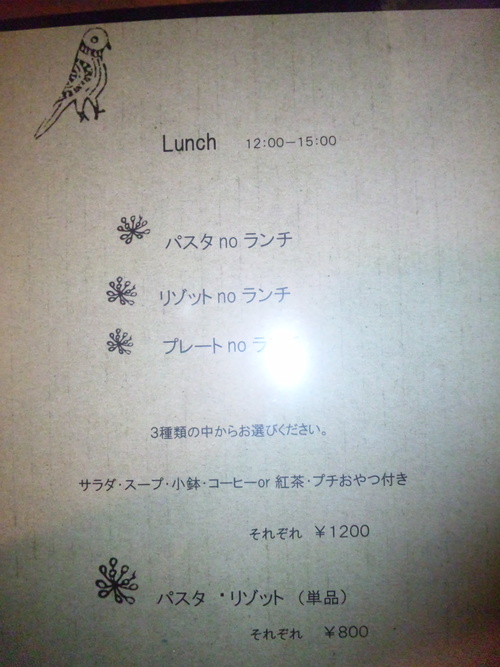 Lunch 12:00－15:00
パスタ no ランチ
リゾット no ランチ
プレート no
3種類の中からお選びください。
サラダ・スープ・小鉢・コーヒーor 紅茶・プチおやつ付き
それぞれ ￥1200
パスタ ・リゾット （単品）
それぞれ ￥800